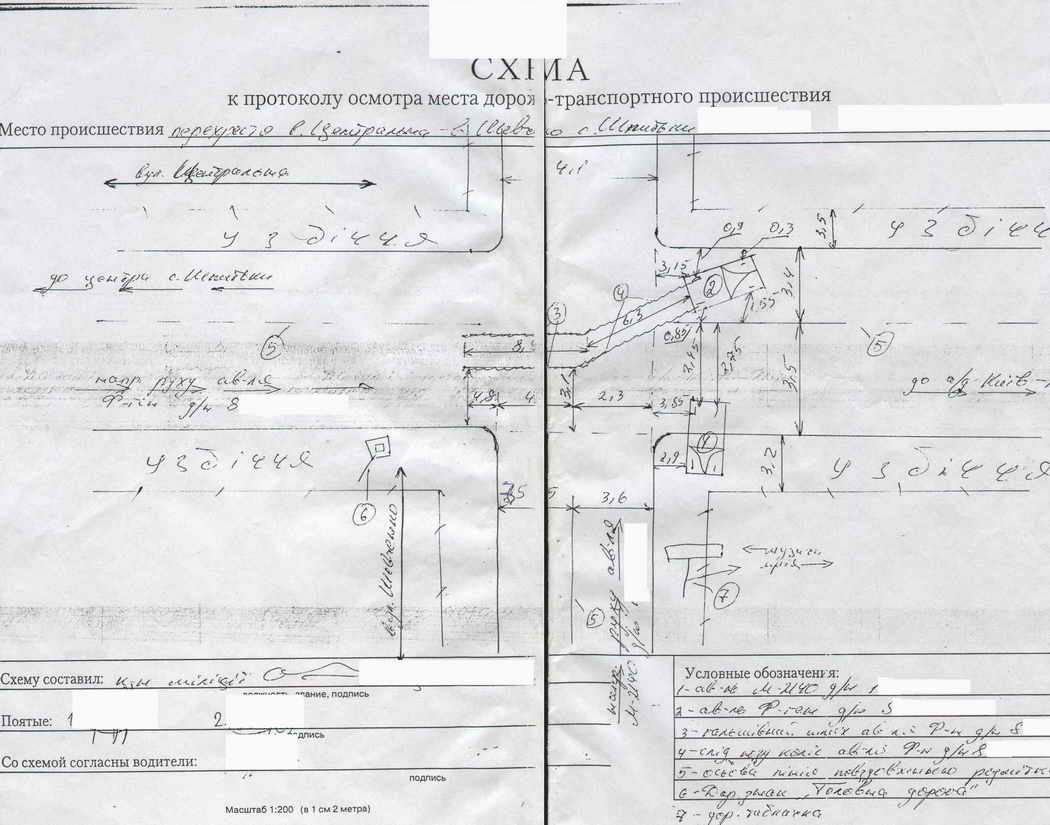 СХЕМА
к протоколу осмотра места дорожно-транспортного происшествия
Место происшествия перехрестя в. Центральна - в. с. Шпитьки
4,1
вул. Центральна
узбіччя
узбіччя
3,5
0,9
0,3
до центра с. Шпитьки
3,15
2
4
6,3
1,55
3,4
3
5
5
0,85
3,45
3,5
напр руху ав-ля
Ф-ген д/н 8
до а/д Київ-
4,8
4,
3,1
2,3
3,85
1
узбіччя
2,9
3,2
узбіччя
6
7,5
5
3,6
вул. Шевченко
напр. руху ав-ля
М-2140 д/н
5
7
Схему составил:
должность, звание, подпись
Понятые: 1
2.
подпись
Со схемой согласны водители:
подпись
Масштаб 1:200 (в 1 см 2 метра)
Условные обозначения:
1 - ав-ль М-2140 д/н
2 - ав-ль Ф-ген д/н 8
3 - гальмівний шлях ав-ля Ф-н д/н 8
4 - слід юзу коліс ав-ля Ф-н д/н 8
5 - осьова лінія повздовжньої розмітки
6 - Дор. знак "Головна дорога"
7 - дор. табличка